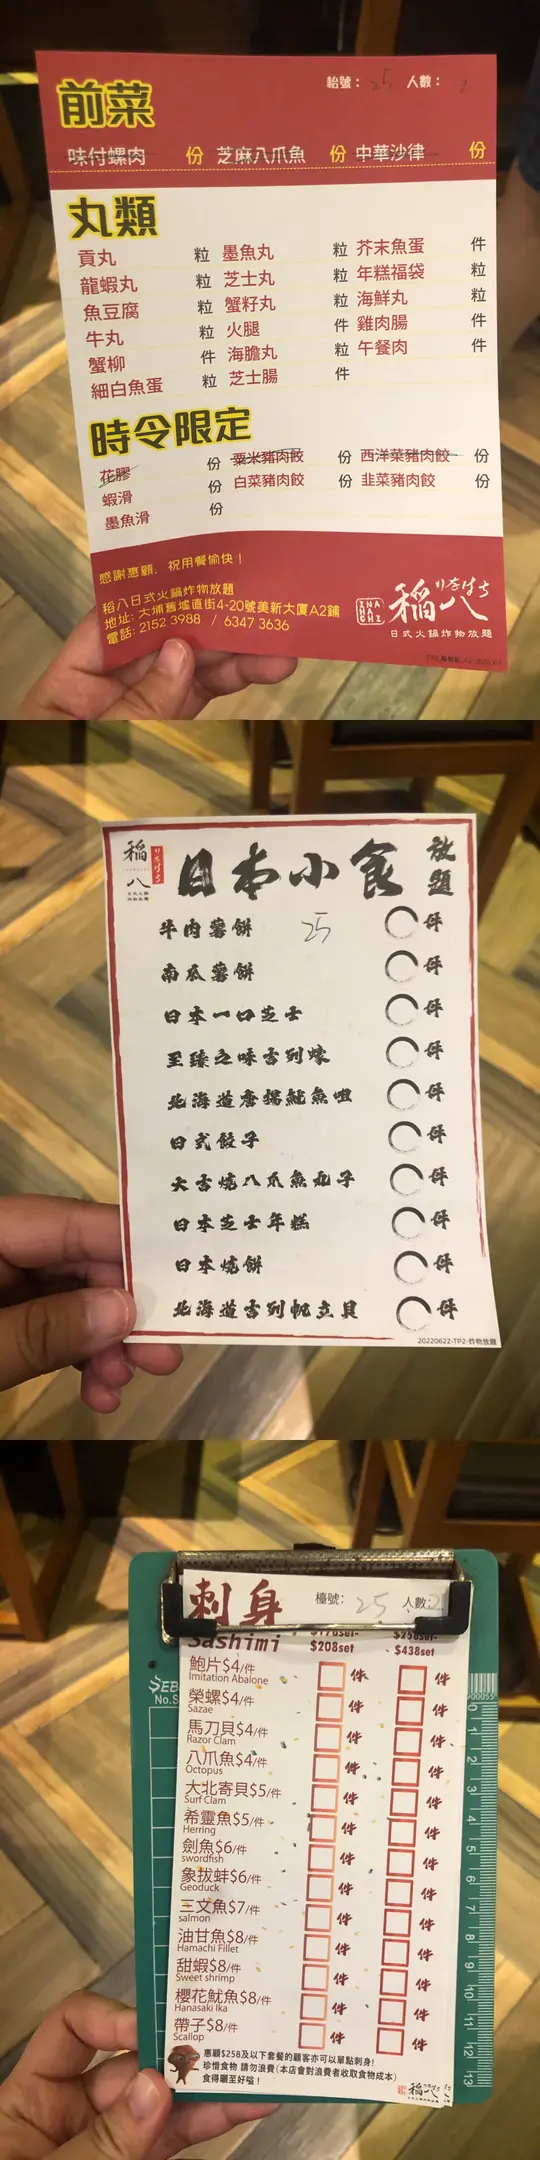 前菜
枱號： 25 人數： 2
味付螺肉 份 芝麻八爪魚 份 中華沙律 份
丸類
貢丸 粒 墨魚丸 粒 芥末魚蛋 件
龍蝦丸 粒 芝士丸 粒 年糕福袋 粒
魚豆腐 粒 蟹籽丸 粒 海鮮丸 粒
牛丸 粒 火腿 件 雞肉腸 件
蟹柳 件 海膽丸 粒 午餐肉 件
細白魚蛋 粒 芝士腸 件
時令限定
花膠 份 粟米豬肉餃 份 西洋菜豬肉餃 份
蝦滑 份 白菜豬肉餃 份 韭菜豬肉餃 份
墨魚滑 份
感謝惠顧，祝用餐愉快！
稻八日式火鍋炸物放題
地址: 大埔舊墟直街4-20號美新大廈A2鋪
電話: 2152 3988 / 6347 3636
INA HACHI 稻八
日式火鍋炸物放題
稻八
日本小食 放題
牛肉薯餅 25 件
南瓜薯餅 件
日本一口芝士 件
至臻之味吉列蠔 件
北海道唐揚魷魚咀 件
日式餃子 件
大吉燒八爪魚丸子 件
日本芝士年糕 件
日本燒餅 件
北海道吉列帆立貝 件
20220622-TP2-炸物放題
刺身 檯號： 25 人數： 2
Sashimi $198set- $258set-
$208set $438set
鮑片$4/件 件 件
Imitation Abalone
榮螺$4/件 件 件
Sazae
馬刀貝$4/件 件 件
Razor Clam
八爪魚$4/件 件 件
Octopus
大北寄貝$5/件 件 件
Surf Clam
希靈魚$5/件 件 件
Herring
劍魚$6/件 件 件
swordfish
象拔蚌$6/件 件 件
Geoduck
三文魚$7/件 件 件
salmon
油甘魚$8/件 件 件
Hamachi Fillet
甜蝦$8/件 件 件
Sweet shrimp
櫻花魷魚$8/件 件 件
Hanasaki Ika
帶子$8/件 件 件
Scallop
惠顧$258及以下套餐的顧客亦可以單點刺身!
珍惜食物 請勿浪費(本店會對浪費者收取食物成本)
食得曬至好嗌！
稻八
No.S
0 1 2 3 4 5 6 7 8 9 10 11 12 13